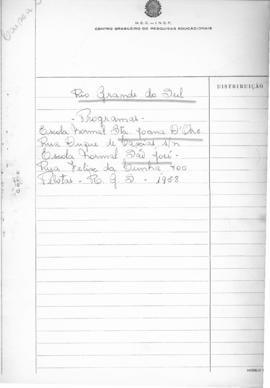 M.E.C. — I.N.E.P.
CENTRO BRASILEIRO DE PESQUISAS EDUCACIONAIS
DISTRIBUIÇÃO
Rio Grande do Sul
- Programas -
Escola Normal Sta. Joana D'Arc
Rua Duque de Caxias, s/n
Escola Normal São José -
Rua Felix da Cunha, 700
Pelotas - R. G. S. - 1958